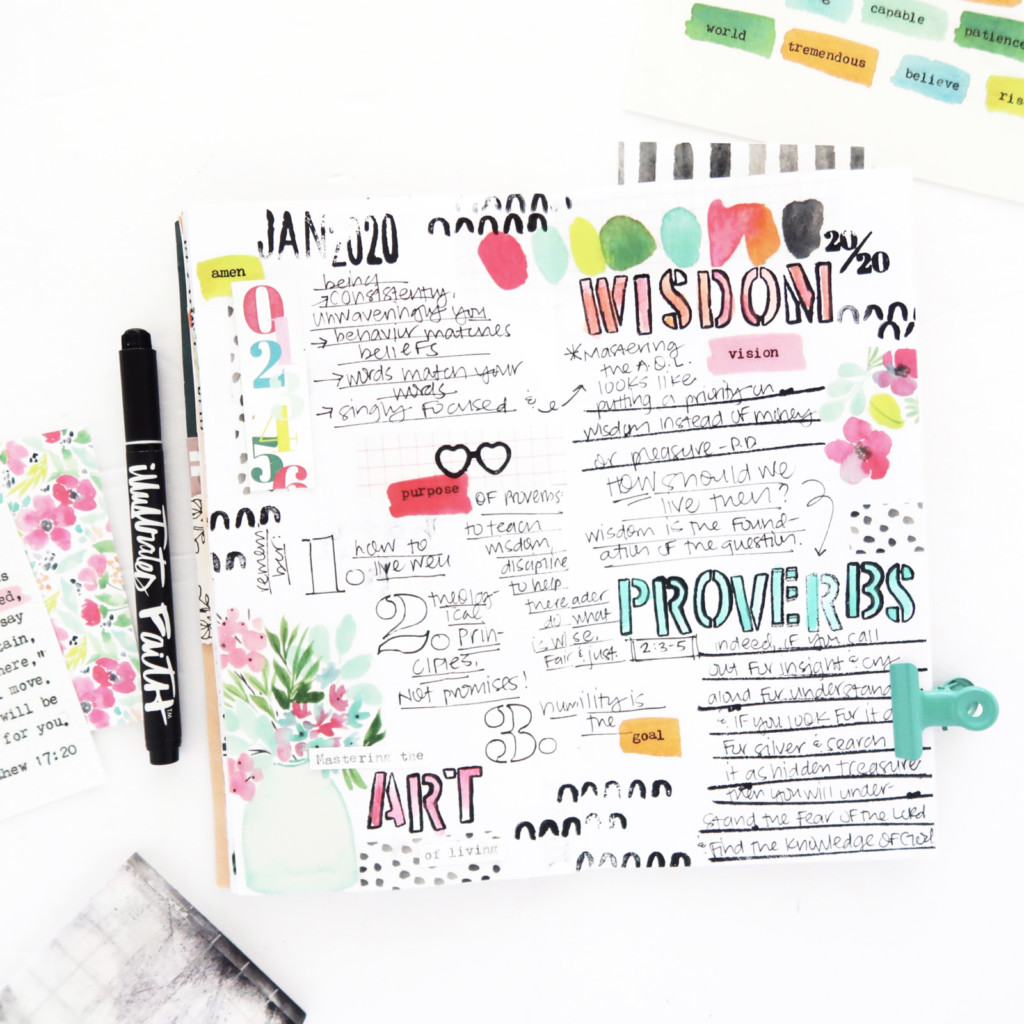 capable
world
patience
tremendous
believe
JAN 2020
20/20
amen
WISDOM
0
2
4
5
6
being
→ consistently,
unwaveringly you
→ behavior matches
beliefs
→ words match your
words
→ singly focused
vision
*Mastering
the A.O.L.
looks like
putting a priority on
wisdom instead of money
or pleasure - P.D.
HOW should we
live then?
wisdom is the found-
ation of the question.
purpose
of Proverbs
to teach
wisdom,
discipline
to help
the reader
do what
is wise,
fair & just.
remem
ber:
1.
how to
live well
2.
theolog-
ical
prin-
ciples,
NOT promises!
3.
humility is
the goal
PROVERBS
2:3-5
indeed, if you call
out for insight & cry
aloud for understand
& if you look for it as
for silver & search
it as hidden treasure
then you will under-
stand the fear of the Lord
& find the knowledge of God
Mastering the
ART
of living
illustrated Faith™
say
here,"
move,
will be
for you.
17:20